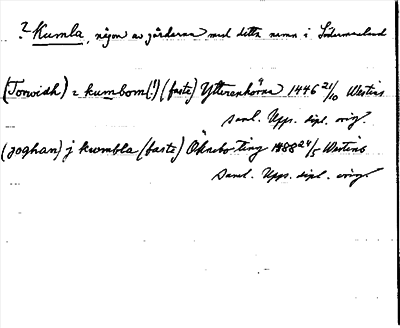 ? Kumla, någon av gårdarna med detta namn i Södermanland
(Torvidh) i kumbom (!) (faste) Ytterenhörna 1446 21/10 Westins
saml. Upps. dipl. orig.
(joghan) j kwmbla (faste) Öknebo ting 1488 24/5 Westins
saml. Upps. dipl. orig.